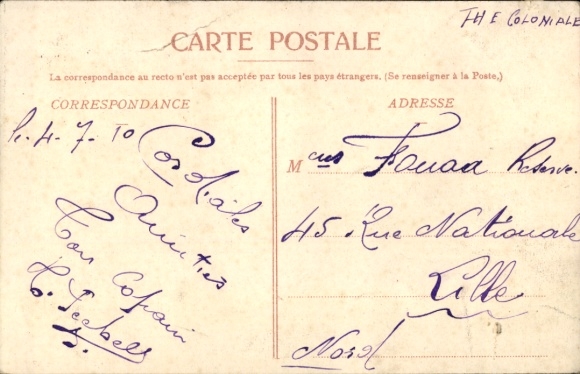 THE COLONIALE
CARTE POSTALE
La correspondance au recto n'est pas acceptée par tous les pays étrangers. (Se renseigner à la Poste.)
CORRESPONDANCE
4-7-10
Cordiales
Amitiés
Ton Copain
ADRESSE
M
45 Rue Nationale
Lille
Nord